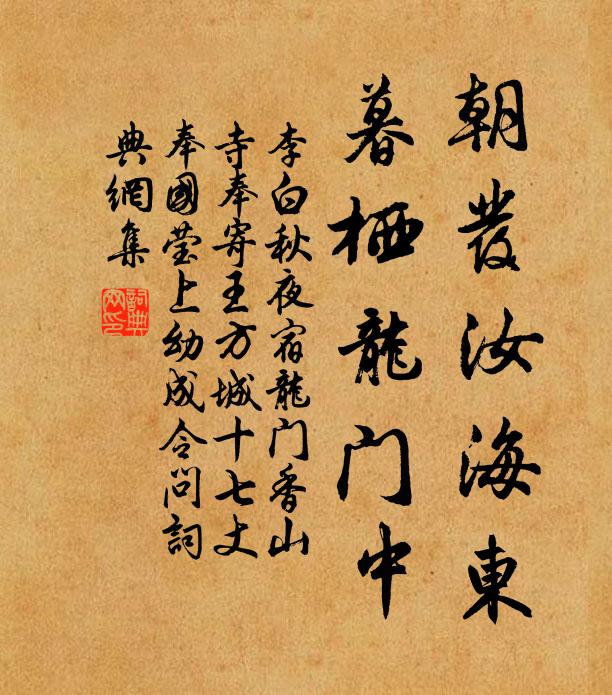 朝發汝海東
暮栖龍门中
李白秋夜宿龍门香山
寺奉寄王方城十七丈
奉國瑩上幼成令问詞
典網集
詞典
网印